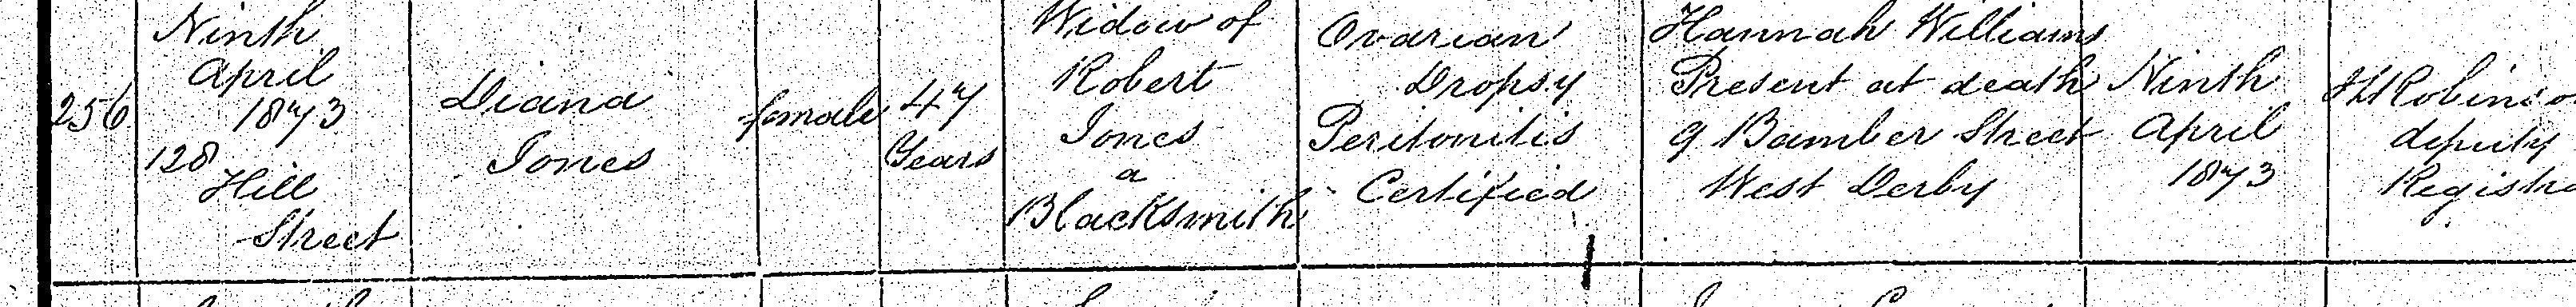 256
Ninth
April
1873
128
Hill
Street
Diana
Jones
female
47
Years
Widow of
Robert
Jones
a
Blacksmith
Ovarian
Dropsy
Peritonitis
Certified
Hannah Williams
Present at death
9 Bamber Street
West Derby
Ninth
April
1873
deputy